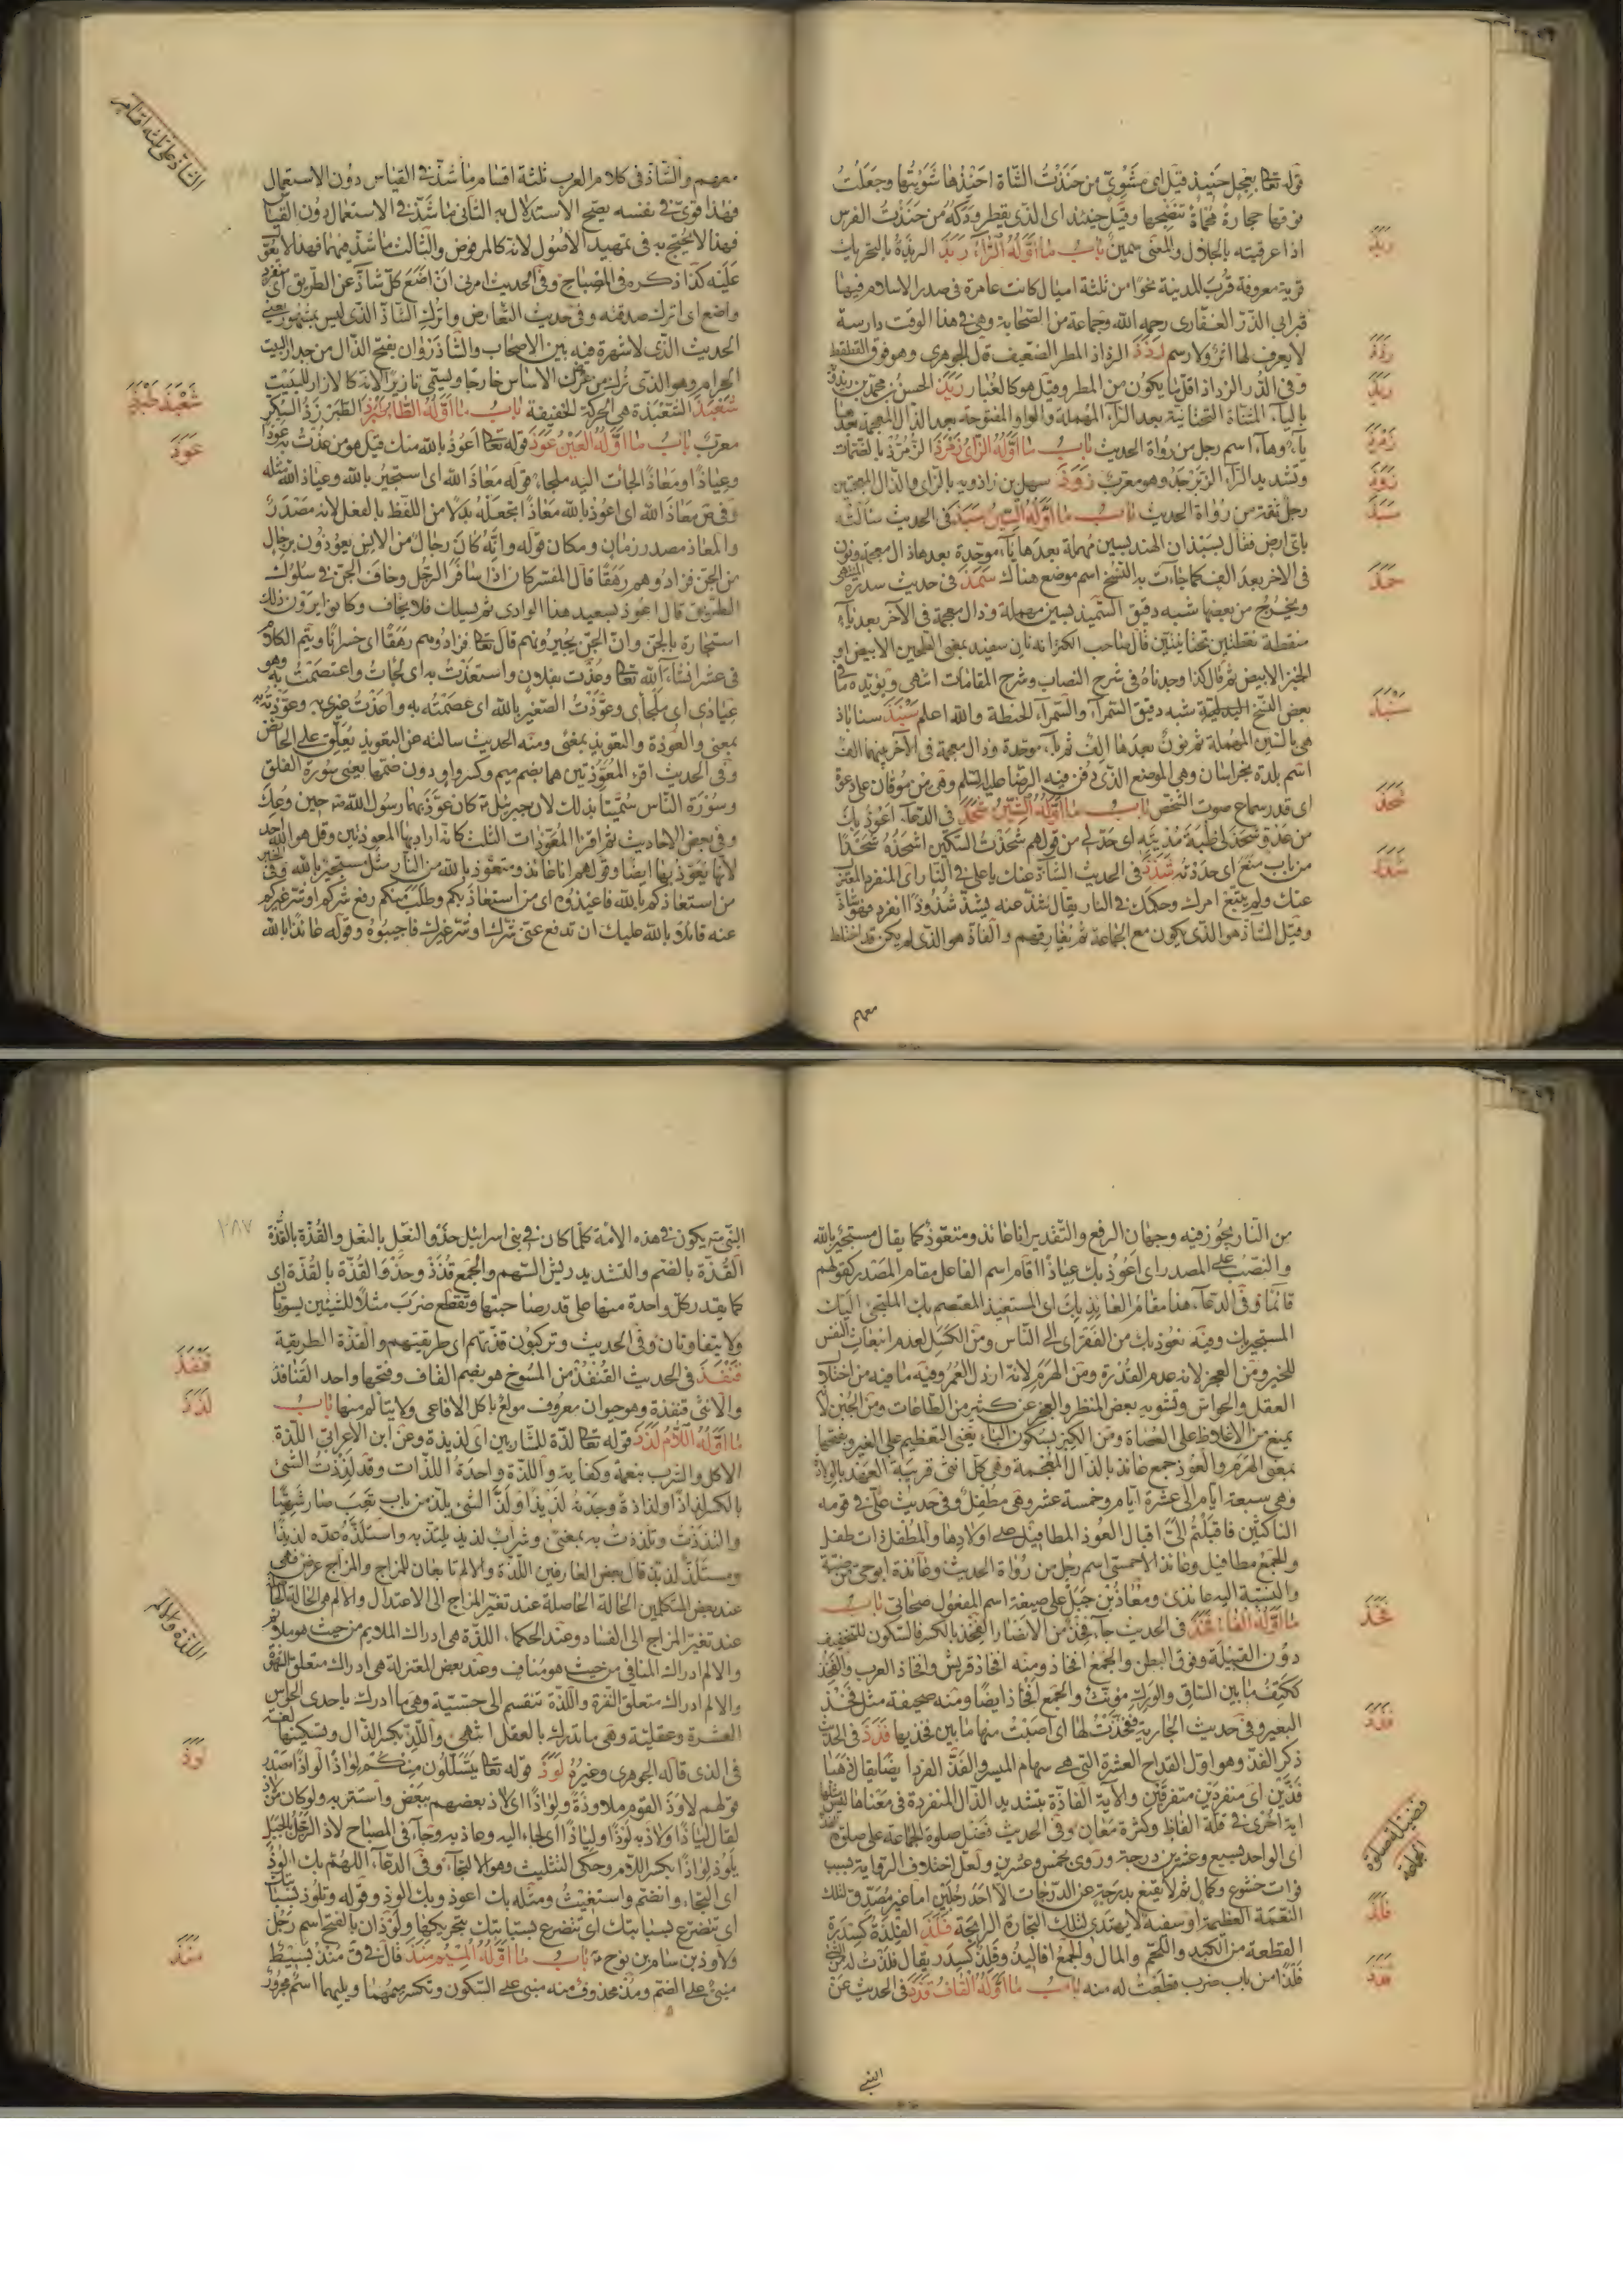 قوله تعالى بعجل حنيذ قيل اى مشوى من حنذت الشاة احنذها شويتها وجعلت
فوقها حجارة محماة تنضجها وقيل حنيذ اى الذى يقطر ودكه من حنذت الفرس
اذا عرقته بالجلال والمعنى سمين باب ما اوله الراء ربذ الربذة بالتحريك
قرية معروفة قرب المدينة نحوا من ثلثة اميال كانت عامرة فى صدر الاسلام فيها
قبر ابى الذر الغفارى رحمه الله وجماعة من الصحابة وهى فى هذا الوقت دارسة
لا يعرف لها اثر ولا رسم رذذ الرذاذ المطر الضعيف قال الجوهرى وهو فوق القطقط
وفى الدر الرذاذ اقل ما يكون من المطر وقيل هو كالغبار ريذ الحسن بن محمد بن
بالياء المثناة التحتانية بعد الراء المهملة والواو المفتوحة بعد الذال المعجمة بعدها
ياء وهاء اسم رجل من رواة الحديث باب ما اوله الزاى زمرذ الزمرذ بالضمات
وتشديد الراء الزبرجد وهو معرب زوذ سهل بن زاذويه بالزاى والذال المعجمتين
رجل ثقة من رواة الحديث باب ما اوله السين سبذ فى الحديث سالته
باى ارض فقال بسبذان الهند بسين مهملة بعدها ياء موحدة بعدها ذال معجمة ونون
فى الاخر بعد الف كما جاءت به النسخ اسم موضع هناك سمذ فى حديث سدرة المنتهى
ويخرج من بعضها شبه دقيق السميذ بسين مهملة وذال معجمة فى الآخر بعد ياء
منقطة نقطتين تحتانيتين قال صاحب الكنز انه نان سفيد بمعنى الطحين الابيض او
الخبز الابيض ثم قال كذا وجدناه فى شرح النصاب وشرح المقامات انتهى ويؤيده ما فى
بعض النسخ شبه دقيق السمراء والسمراء الحنطة والله اعلم سنبذ سناباذ
هى بالسين المهملة ثم نون بعدها الف ثم باء موحدة وذال معجمة فى الآخر بينهما الف
اسم بلدة بخراسان وهى الموضع الذى دفن فيه الرضا عليه السلم وهى من موقان على دعوة
اى قدر سماع صوت الشخص باب ما اوله الشين شحذ فى الدعاء اعوذ بك
من عدو شحذ لى ظبة مديته اى حد لى من قولهم شحذت السكين اشحذه شحذا
من باب منع اى حددته شذذ فى الحديث الشاذ عنك يا على فى النار اى المنفرد المعتزل
عنك ولم يتبع امرك وحكمك فى النار يقال شذ عنه يشذ شذوذا انفرد فهو شاذ
وقيل الشاذ هو الذى يكون مع الجماعة ثم يفارقهم والفاذ هو الذى لم يكن قد اختلط
معهم
ربذ
رذذ
ريذ
زمرذ
زوذ
سبذ
سمذ
سنبذ
شحذ
شذذ
معهم والشاذ فى كلام العرب ثلثة اقسام ما شذ فى القياس دون الاستعمال
فهذا قوى فى نفسه يصح الاستدلال به الثانى ما شذ فى الاستعمال دون القياس
فهذا لا يحتج به فى تمهيد الاصول لانه كالمرفوض والثالث ما شذ فيهما فهذا لا يعول
عليه كذا ذكره فى المصباح وفى الحديث امرنى ان اضع كل شاذ عن الطريق اى
واضع اى اترك صدقته وفى حديث التعارض واترك الشاذ الذى ليس بمشهور يعنى
الحديث الذى لا شهرة فيه بين الاصحاب والشاذروان بفتح الذال من جدار البيت
الحرام وهو الذى ترك من عرض الاساس خارجا ويسمى تازيرا لانه كالازار للبيت
شعبذ الشعبذة هى الحركة الخفيفة باب ما اوله الطاء طبرزذ الطبرزذ السكر
معرب باب ما اوله العين عوذ قوله تعالى اعوذ بالله منك قيل هو من عذت به عوذا
وعياذا ومعاذا لجات اليه ملجاء قوله معاذ الله اى استجير بالله وعياذ الله مثله
وفى ق معاذ الله اى اعوذ بالله معاذا تجعله بدلا من اللفظ بالفعل لانه مصدر
والمعاذ مصدر وزمان ومكان قوله وانه كان رجال من الانس يعوذون برجال
من الجن فزادوهم رهقا قال المفسر كان اذا سافر الرجل وخاف الجن فى سلوك
الطريق قال اعوذ بسيد هذا الوادى ثم يسلك فلا يخاف وكانوا يرون ذلك
استجارة بالجن وان الجن يجيرونهم قال تعالى فزادوهم رهقا اى خسرانا ويتم الكلام
فى عشر انشاء الله تعالى وعذت بفلان واستعذت به اى لجات واعتصمت به وهو
عياذى اى ملجاى وعوذت الصغير بالله اى عصمته به واعذت غيرى به وعوذته به
بمعنى والعوذة والتعويذ بمعنى ومنه الحديث سالته عن التعويذ يعلق على الحائض
وفى الحديث اقرء المعوذتين هما بضم ميم وكسر واو دون ضمتها يعنى سورة الفلق
وسورة الناس سميتا بذلك لان جبرئل كان عوذ بهما رسول الله حين وعك
وفى بعض الاحاديث ثم اقرا المعوذات الثلث كانه اراد بها المعوذتين وقل هو الله احد
لانها يعوذ بها ايضا وقولهم انا عائذ ومتعوذ بالله من النار مثل مستجير بالله وفى الخبر
من استعاذكم بالله فاعيذوه اى من استعاذ بكم وطلب منكم رفع شركم او شر غيركم
عنه قائلا بالله عليك ان تدفع عنى شرك او شر غيرك فاجيبوه وقوله عائذا بالله
الشاذ على ثلثة اقسام
شعبذ طبرزذ
عوذ
من النار يجوز فيه وجهان الرفع والتقدير انا عائذ ومتعوذ كما يقال مستجير بالله
والنصب على المصدر اى اعوذ بك عياذا اقام اسم الفاعل مقام المصدر كقولهم
قائما وفى الدعاء هذا مقام العائذ بك اى المستعيذ المعتصم بك الملتجئ اليك
المستجير بك وفيه نعوذ بك من الفقر اى الى الناس ومن الكسل لعدم انبعاث النفس
للخير ومن العجز لانه عدم القدرة ومن الهرم لانه ارذل العمر وفيه ما فيه من اختلال
العقل والحواس وتشويه بعض المنظر والعجز عن كثير من الطاعات ومن الجبن لا
يمنع من الاغلاظ على العصاة ومن الكبر بسكون الباء يعنى التعظيم على الغير وبفتحها
بمعنى الهرم والعوذ جمع عائذ بالذال المعجمة وهى كل انثى قريبة العهد بالولادة
وهى سبعة ايام الى عشرة ايام وخمسة عشر وهى مطفل وفى حديث على فى قومه
الناكثين فاقبلتم الى اقبال العوذ المطافيل على اولادها والمطفل ذات طفل
والجمع مطافيل وعائذ الاحمسى اسم رجل من رواة الحديث وعائذة ابو حى من ضبة
والنسبة اليه عائذى ومعاذ بن جبل على صيغة اسم المفعول صحابى باب
ما اوله الفاء فخذ فى الحديث جاء فخذ من الانصار الفخذ بالكسر فالسكون للتخفيف
دون القبيلة وفوق البطن والجمع افخاذ ومنه افخاذ قريش وافخاذ العرب والفخذ
ككتف ما بين الساق والورك مؤنث والجمع افخاذ ايضا ومنه صحيفة مثل فخذ
البعير وفى حديث الجارية ففخذت لها اى اصبت منها ما بين فخذيها فذذ فى الحديث
ذكر الفذ وهو اول القداح العشرة التى هى سهام الميسر والفذ الفرد ايضا يقال ذهبا
فذين اى منفردين متفرقين والآية الفاذة بتشديد الذال المنفردة فى معناها ليس مثلها
اية اخرى فى قلة الفاظ وكثرة معان وفى الحديث فضل صلوة الجماعة على صلوة الفذ
اى الواحد بسبع وعشرين درجة وروى بخمس وعشرين ولعل اختلاف الرواية بسبب
فوات خشوع وكمال ثم لا يقنع بدرجة عن الدرجات الا احد رجلين اما غير مصدق لتلك
النعمة العظيمة او سفيه لا يهتدى لتلك التجارة الرابحة فلذ الفلذة كسدرة
القطعة من الكبد واللحم والمال والجمع افاليذ وفلذ كسدر يقال فلذت له من الشئ
فلذا من باب ضرب قطعت له منه باب ما اوله القاف قذذ فى الحديث عن
النبى
فخذ
فذذ
فضيلة صلوة الجماعة
فلذ
قذذ
٢٨٧
النبى يكون فى هذه الامة كلما كان فى بنى اسرائيل حذو النعل بالنعل والقذة بالقذة
القذة بالضم والتشديد ريش السهم والجمع قذذ وحذو القذة بالقذة اى
كما يقدر كل واحدة منها على قدر صاحبتها وتقطع ضرب مثلا للشيئين يستويان
ولا يتفاوتان وفى الحديث وتركبون قذتهم اى طريقتهم والقذة الطريقة
قنفذ فى الحديث القنفذ من المسوخ هو بضم القاف وفتحها واحد القنافذ
والانثى قنفذة وهو حيوان معروف مولع باكل الافاعى ولا يتالم منها باب
ما اوله اللام لذذ قوله تعالى لذة للشاربين اى لذيذة وعن ابن الاعرابى اللذة
الاكل والشرب بنعمة وكفاية واللذة واحدة اللذات وقد لذذت الشئ
بالكسر لذاذا ولذاذة وجدته لذيذا ولذ الشئ يلذ من باب تعب صار شهيا
والتذذت وتلذذت به بمعنى وشراب لذيذ يلتذ به واستلذه عده لذيذا
ومستلذ لذيذ قال بعض العارفين اللذة والالم تابعان للمزاج والمزاج عرض فهى
عند بعض المتكلمين الحالة الحاصلة عند تغير المزاج الى الاعتدال والالم هى الحالة
عند تغير المزاج الى الفساد وعند الحكماء اللذة هى ادراك الملايم من حيث هو ملايم
والالم ادراك المنافى من حيث هو مناف وعند بعض المعتزلة هى ادراك متعلق الشهوة
والالم ادراك متعلق النفرة واللذة تنقسم الى حسية وهى ما ادرك باحدى الحواس
العشرة وعقلية وهى ما تدرك بالعقل انتهى واللذ بكسر الذال وتسكينها لغة
فى الذى قاله الجوهرى وغيره لوذ قوله تعالى يتسللون منكم لواذا لواذا مصدر
قولهم لاوذ القوم ملاوذة ولواذا اى لاذ بعضهم ببعض واستتر به ولو كان من لاذ
لقال لياذا ولاذ به لوذا ولياذا اى لجاء اليه وعاذ به وجاء فى المصباح لاذ الرجل بالجبل
يلوذ لواذا بكسر اللام وحكى التثليث وهو الالتجاء وفى الدعاء اللهم بك الوذ
اى التجاء وانضم واستغيث ومثله بك اعوذ وبك الوذ وقوله وتلوذ بسبابتك
اى تتضرع بسبابتك اى تتضرع بسبابتك بتحريكها ولوذان بالفتح اسم رجل
ولاوذ بن سام بن نوح باب ما اوله الميم منذ قال فى ق منذ بسيط
مبنى على الضم ومذ محذوف منه مبنى على السكون وتكسر ميمهما ويليهما اسم مجرور
قنفذ
لذذ
اللذة والالم
لوذ
منذ